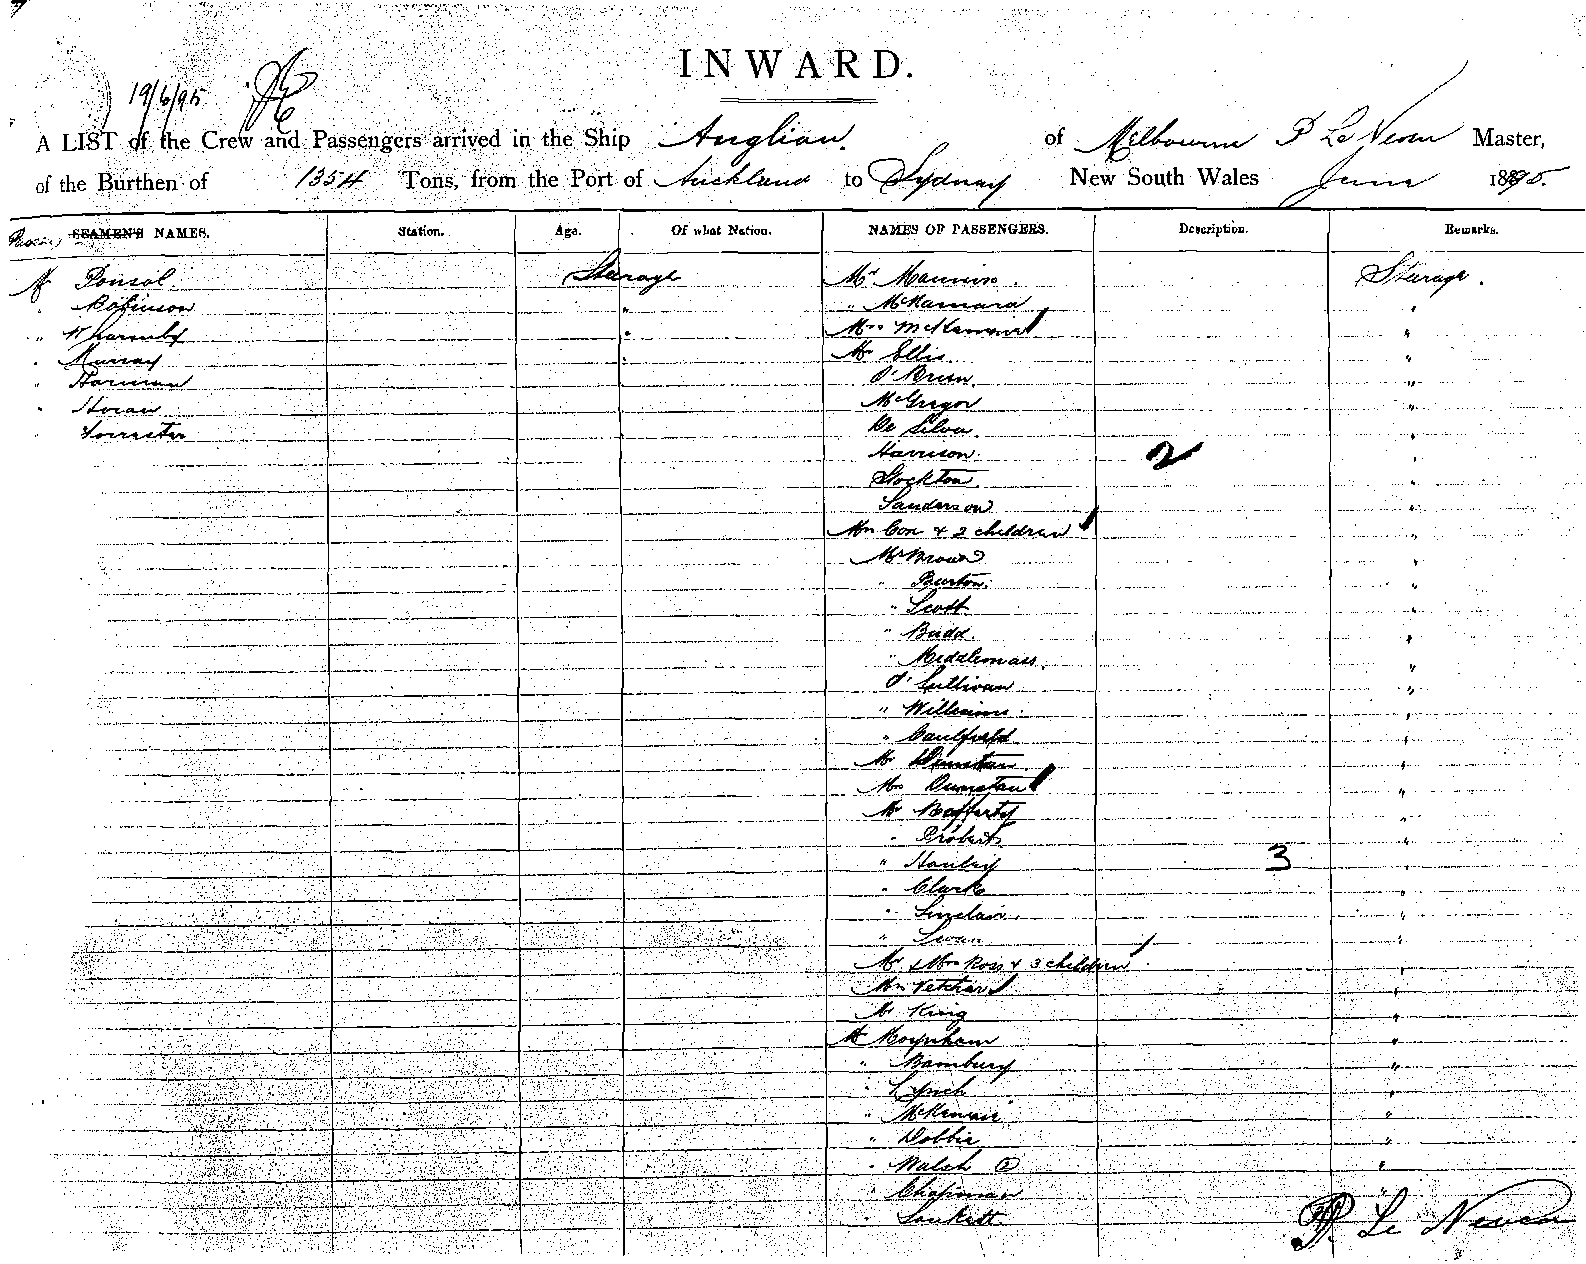 INWARD.
19/6/95
A LIST of the Crew and Passengers arrived in the Ship Anglian. of Melbourne P Le Neveu Master,
of the Burthen of 1354 Tons, from the Port of Auckland to Sydney New South Wales June 1895.
SEAMEN'S NAMES. Station. Age. Of what Nation. NAMES OF PASSENGERS. Description. Remarks.
Mr Ponsol. Steerage Mr Mannin. Steerage.
" Robinson " " McNamara "
" Wharmby " Mrs McNamara "
" Murray " Mr Ellis "
" Harman O'Brien. "
" Horan McGregor "
" Forrester De Silva. "
Harrison. 2 "
Stockton. "
Sanderson "
Mrs Cox & 2 children "
Mr Brown "
" Burton. "
" Scott "
" Budd. "
" Middlemass. "
O'Sullivan "
" Williams. "
" Caulfield "
Mr Dunstan "
Mrs Dunstan "
Mr Rafferty "
" Probert "
" Hanley 3 "
" Clark "
" Sinclair. "
" Swan "
Mr & Mrs Ross & 3 children "
Mrs "
Mr King "
Mr Moynham "
" Bambury "
" Lynch "
" "
" Dobbie "
" Walsh "
" Chapman "
" P. Le Neveu